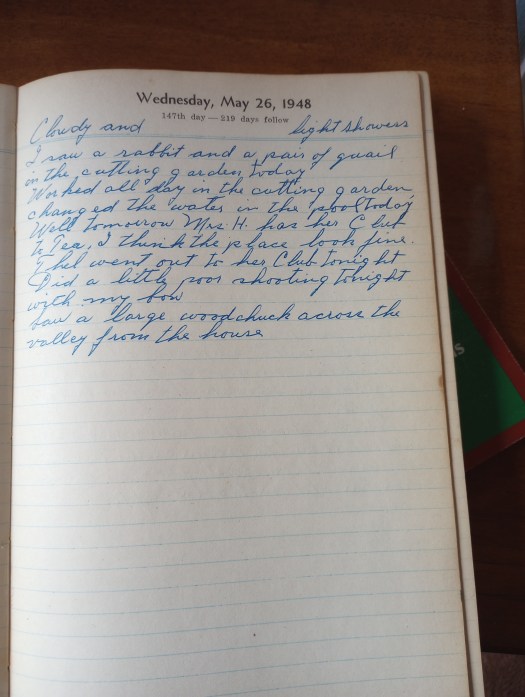 Wednesday, May 26, 1948
147th day — 219 days follow
Cloudy and light showers
I saw a rabbit and a pair of quail
in the cutting garden today
Worked all day in the cutting garden,
changed the water in the pool today
Well tomorrow Mrs. H. has her Club
to Tea, I think the place look fine.
Ethel went out to her Club tonight
Did a little poor shooting tonight
with my bow
Saw a large woodchuck across the
valley from the house